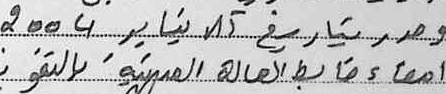 وحرر بتاريخ 21 يناير 2004
امضاء ضابط الحالة المدنية بالتفو